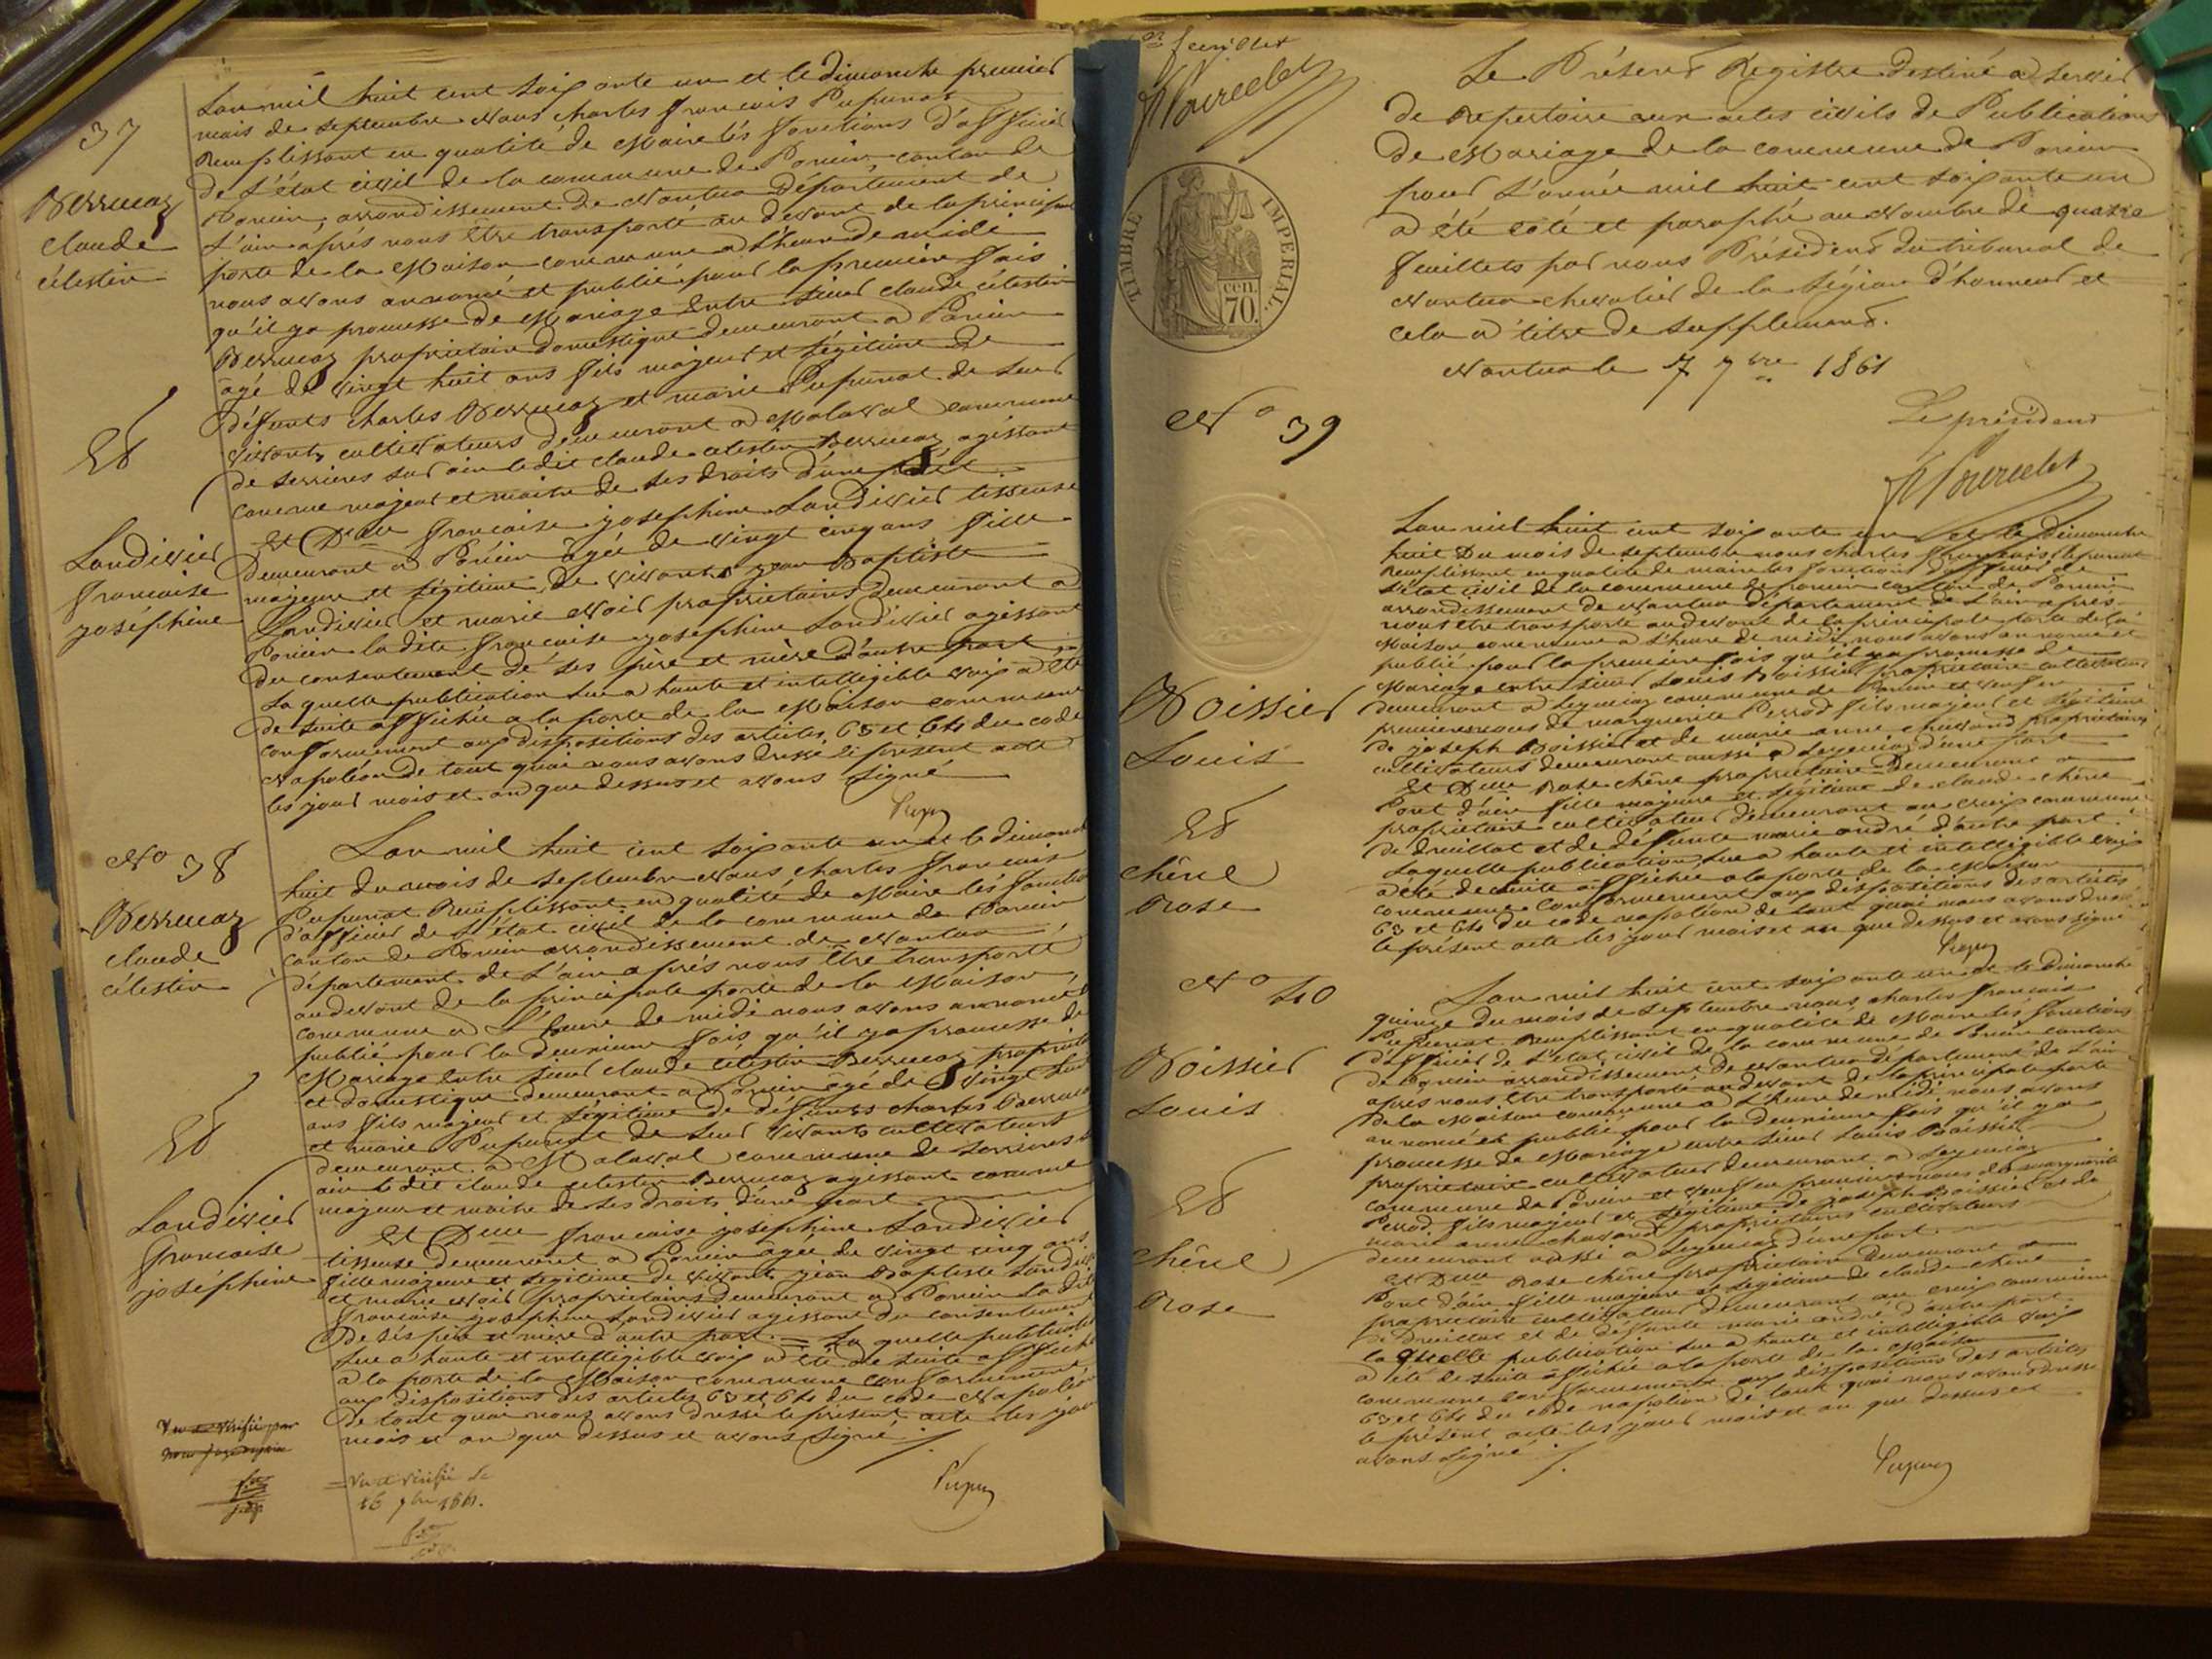 37
Berrucaz
Claude
Célestin
Et
Landivier
Francoise
joséphine
L'an mil huit cent soixante un et le dimanche premier
mois de septembre Nous Charles François Pupunat
Remplissant en qualité de Maire les fonctions d'officier
de L'état civil de la commune de Poncin canton de
Poncin, arrondissement de Nantua Département de
L'ain après nous être transporté au devant de la principale
porte de la Maison commune à L'heure de midi
nous avons annoncé et publié pour la première fois
qu'il ya promesse de Mariage Entre sieur claude célestin
Berrucaz proprietaire domestique demeurant a Poncin
âgé de vingt huit ans fils majeur et légitime de
défunts charles Berrucaz et marie Pupunat de leur
vivants cultivateurs demeurant a Malaval commune
de serrieres sur ain ledit claude celestin Berrucaz agissant
comme majeur et maitre de ses droits d'une part
Et Dlle francoise josephine Landivier tisseuse
demeurant a Poncin âgée de vingt cinq ans fille
majeure et légitime, de vivants jean Baptiste
Landivier et marie Noir proprietaires demeurant a
Poncin ladite francoise josephine Landivier agissant
du consentement de ses père et mère d'autre part
La quelle publication lue a haute et intelligible voix a été
de suite affichée a la porte de la Maison commune
conformement aux dispositions des articles 63 et 64 du code
Napoléon de tout quoi nous avons dressé le présent acte
les jour mois et an que dessus et avons signé
No 38
Berrucaz
claude
célestin
Et
Landivier
francoise
joséphine
L'an mil huit cent soixante un et le dimanche
huit du mois de septembre Nous charles francois
Pupunat Remplissant en qualité de Maire les fonctions
d'officier de L'état civil de la commune de Poncin
canton de Poncin arrondissement de Nantua
département de L'ain après nous être transporté
au devant de la principale porte de la Maison
commune a L'heure de midi nous avons annoncé
publié pour la deuxieme fois qu'il ya promesse de
Mariage entre sieur claude célestin Berrucaz propriétaire
et domestique demeurant a Poncin âgé de vingt huit
ans fils majeur et légitime de défunts charles Berrucaz
et marie Pupunat de leur vivants cultivateurs
demeurant a Malaval commune de serrieres
ain le dit claude celestin Berrucaz agissant comme
majeur et maitre de ses droits d'une part
Et Dlle francoise joséphine Landivier
tisseuse demeurant a Poncin âgée de vingt cinq ans
fille majeure et légitime de vivants jean Baptiste Landivier
et marie Noir proprietaires demeurant a Poncin la dite
francoise joséphine Landivier agissant du consentement
De ses père et mère d'autre part = La quelle publication
lue a haute et intelligible voix a été de suite affichée
a la porte de la Maison commune conformément
aux dispositions des articles 63 et 64 du code Napoléon
de tout quoi nous avons dressé le présent acte les jour
mois et an que dessus et avons signé
Vu et vérifié par
Vu et vérifié le
16 9bre 1861.
1er feuillet
TIMBRE IMPERIAL.
cen.
70.
Le Présent Registre destiné a servir
de repertoire aux actes civils de Publications
de Mariage de la commune de Poncin
pour L'année mil huit cent soixante un
a été coté et paraphé au Nombre de quatre
feuillets par nous Président du tribunal de
Nantua chevalier de la Légion d'honneur et
cela a titre de supplement.
Nantua le 7 7bre 1861
Le président
No 39
Boissier
Louis
Et
chêne
Rose
L'an mil huit cent soixante un et le dimanche
huit Du mois de septembre nous charles francois Pupunat
Remplissant en qualité de maire les fonctions d'officier de
L'état civil de la commune de poncin canton de Poncin
arrondissement de nantua département de L'ain après
nous etre transporté au devant de la principale porte de la
Maison commune a L'heure de midi nous avons annoncé et
publié pour la premiere fois qu'il ya promesse de
Mariage entre sieur Louis Boissier propriétaire cultivateur
demeurant a Leymiaz commune de Poncin et veuf en
premieres noces de marguerite Perrod fils majeur et légitime
de joseph Boissier et de marie anne chavand propriétaires
cultivateurs demeurant aussi a Leymiaz d'une part
Et Dlle Rose chêne propriétaire demeurant a
Pont d'ain fille majeure et légitime de claude chêne
propriétaire cultivateur demeurant au commune
de druillat et de défunte marie andré d'autre part.
Laquelle publication lue a haute et intelligible voix
a été de suite affichée a la porte de la Maison
commune conformement aux dispositions des articles
63 et 64 du code napoléon de tout quoi nous avons dressé
le présent acte les jour mois et an que dessus et avons signé
No 40
Boissier
Louis
Et
chêne
Rose
L'an mil huit cent soixante un et le dimanche
quinze du mois de septembre nous charles francois
Pupunat Remplissant en qualité de Maire les fonctions
d'officier de L'état civil de la commune de Poncin canton
de Poncin arrondissement de Nantua département de L'ain
après nous être transporté au devant de la principale porte
de la Maison commune a L'heure de midi nous avons
annoncé et publié pour la deuxieme fois qu'il ya
promesse de Mariage entre sieur Louis Boissier
propriétaire cultivateur demeurant a Leymiaz
commune de Poncin et veuf en premieres noces de marguerite
Perrod fils majeur et légitime de joseph Boissier et de
marie anne chavand propriétaires cultivateurs
demeurant aussi a Leymiaz d'une part
Et Dlle Rose chêne propriétaire demeurant a
Pont d'ain fille majeure et légitime de claude chêne
propriétaire cultivateur demeurant au commune
de Druillat et de défunte marie andré d'autre part.
la quelle publication lue a haute et intelligible voix
a été de suite affichée a la porte de la Maison
commune conformement aux dispositions des articles
63 et 64 du code napoléon de tout quoi nous avons dressé
le présent acte les jour mois et an que dessus et
avons signé